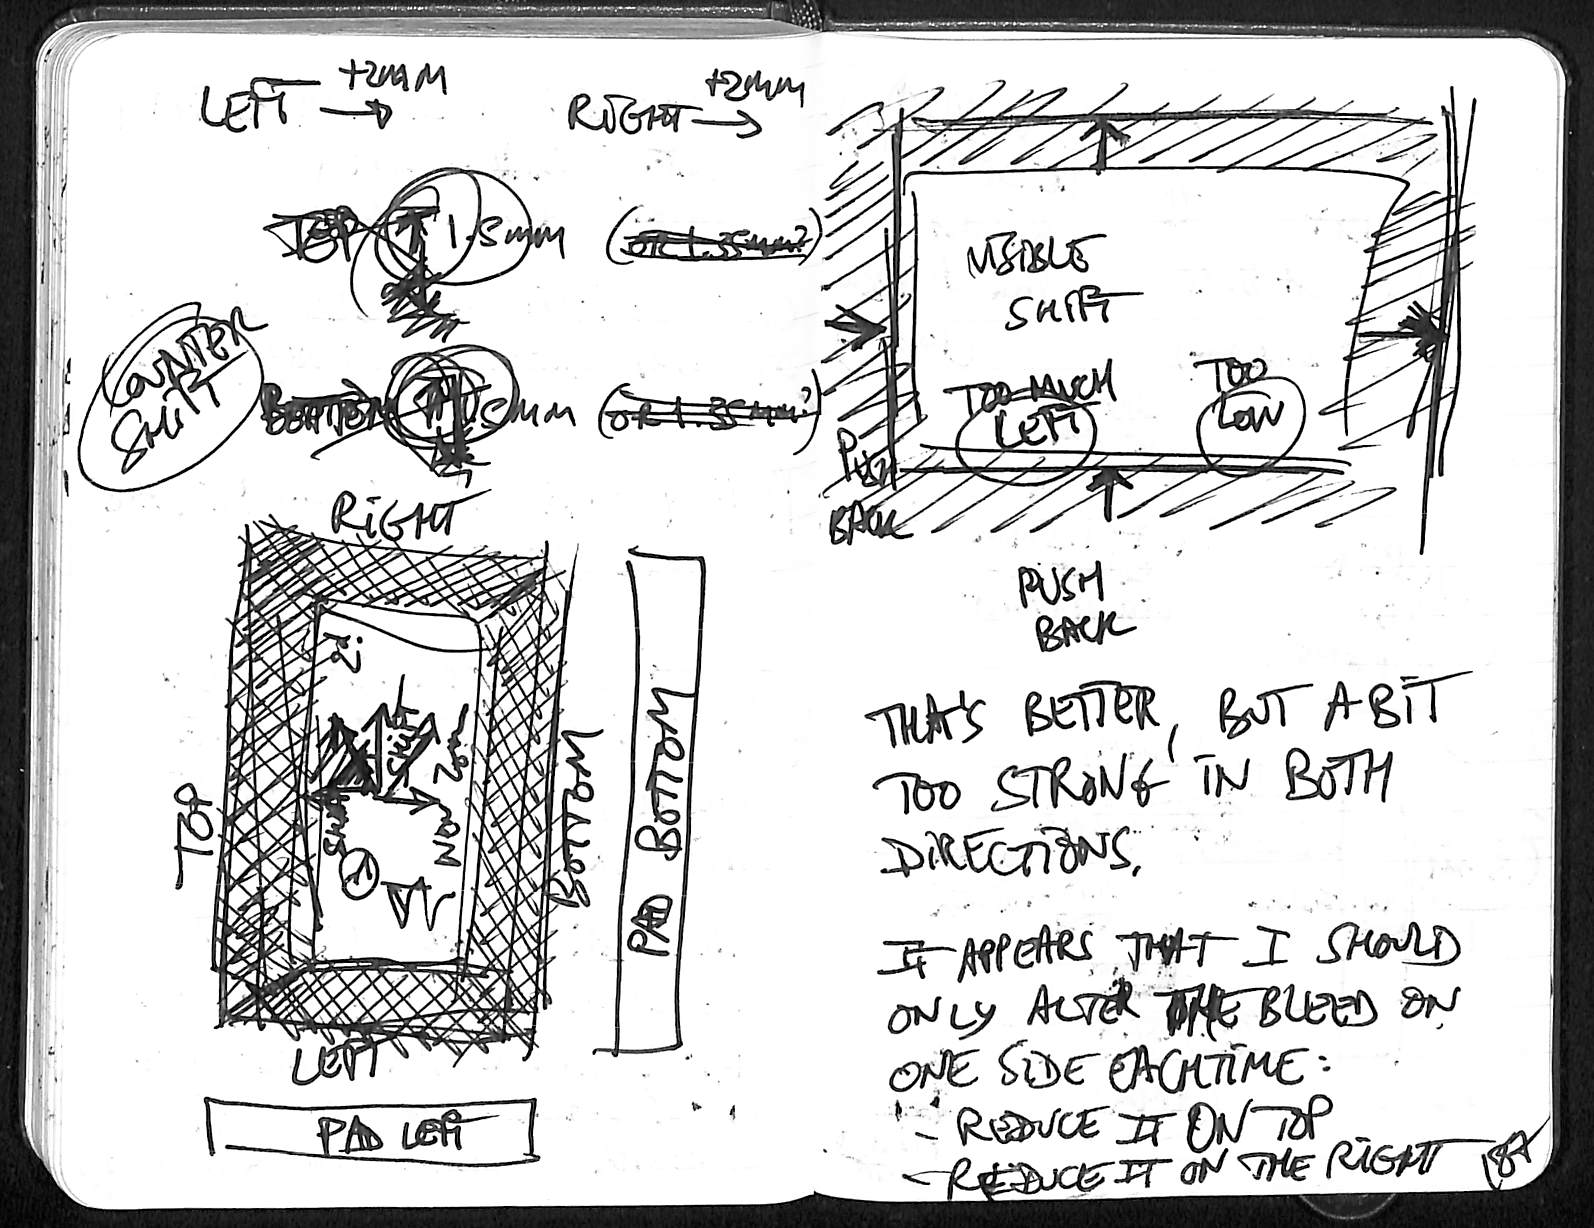 LEFT → +2MM
RIGHT → +2MM
TOP ↑ 1.5mm (OR 1.35mm?)
COUNTER
SHIFT
BOTTOM 1.5mm (OR 1.35mm?)
RIGHT
TOP
BOTTOM
PAD BOTTOM
LEFT
PAD LEFT
VISIBLE
SHIFT
TOO MUCH
LEFT
TOO
LOW
PUSH
BACK
PUSH
BACK
THAT'S BETTER, BUT A BIT
TOO STRONG IN BOTH
DIRECTIONS.
IT APPEARS THAT I SHOULD
ONLY ALTER THE BLEED ON
ONE SIDE EACH TIME:
- REDUCE IT ON TOP
- REDUCE IT ON THE RIGHT
187